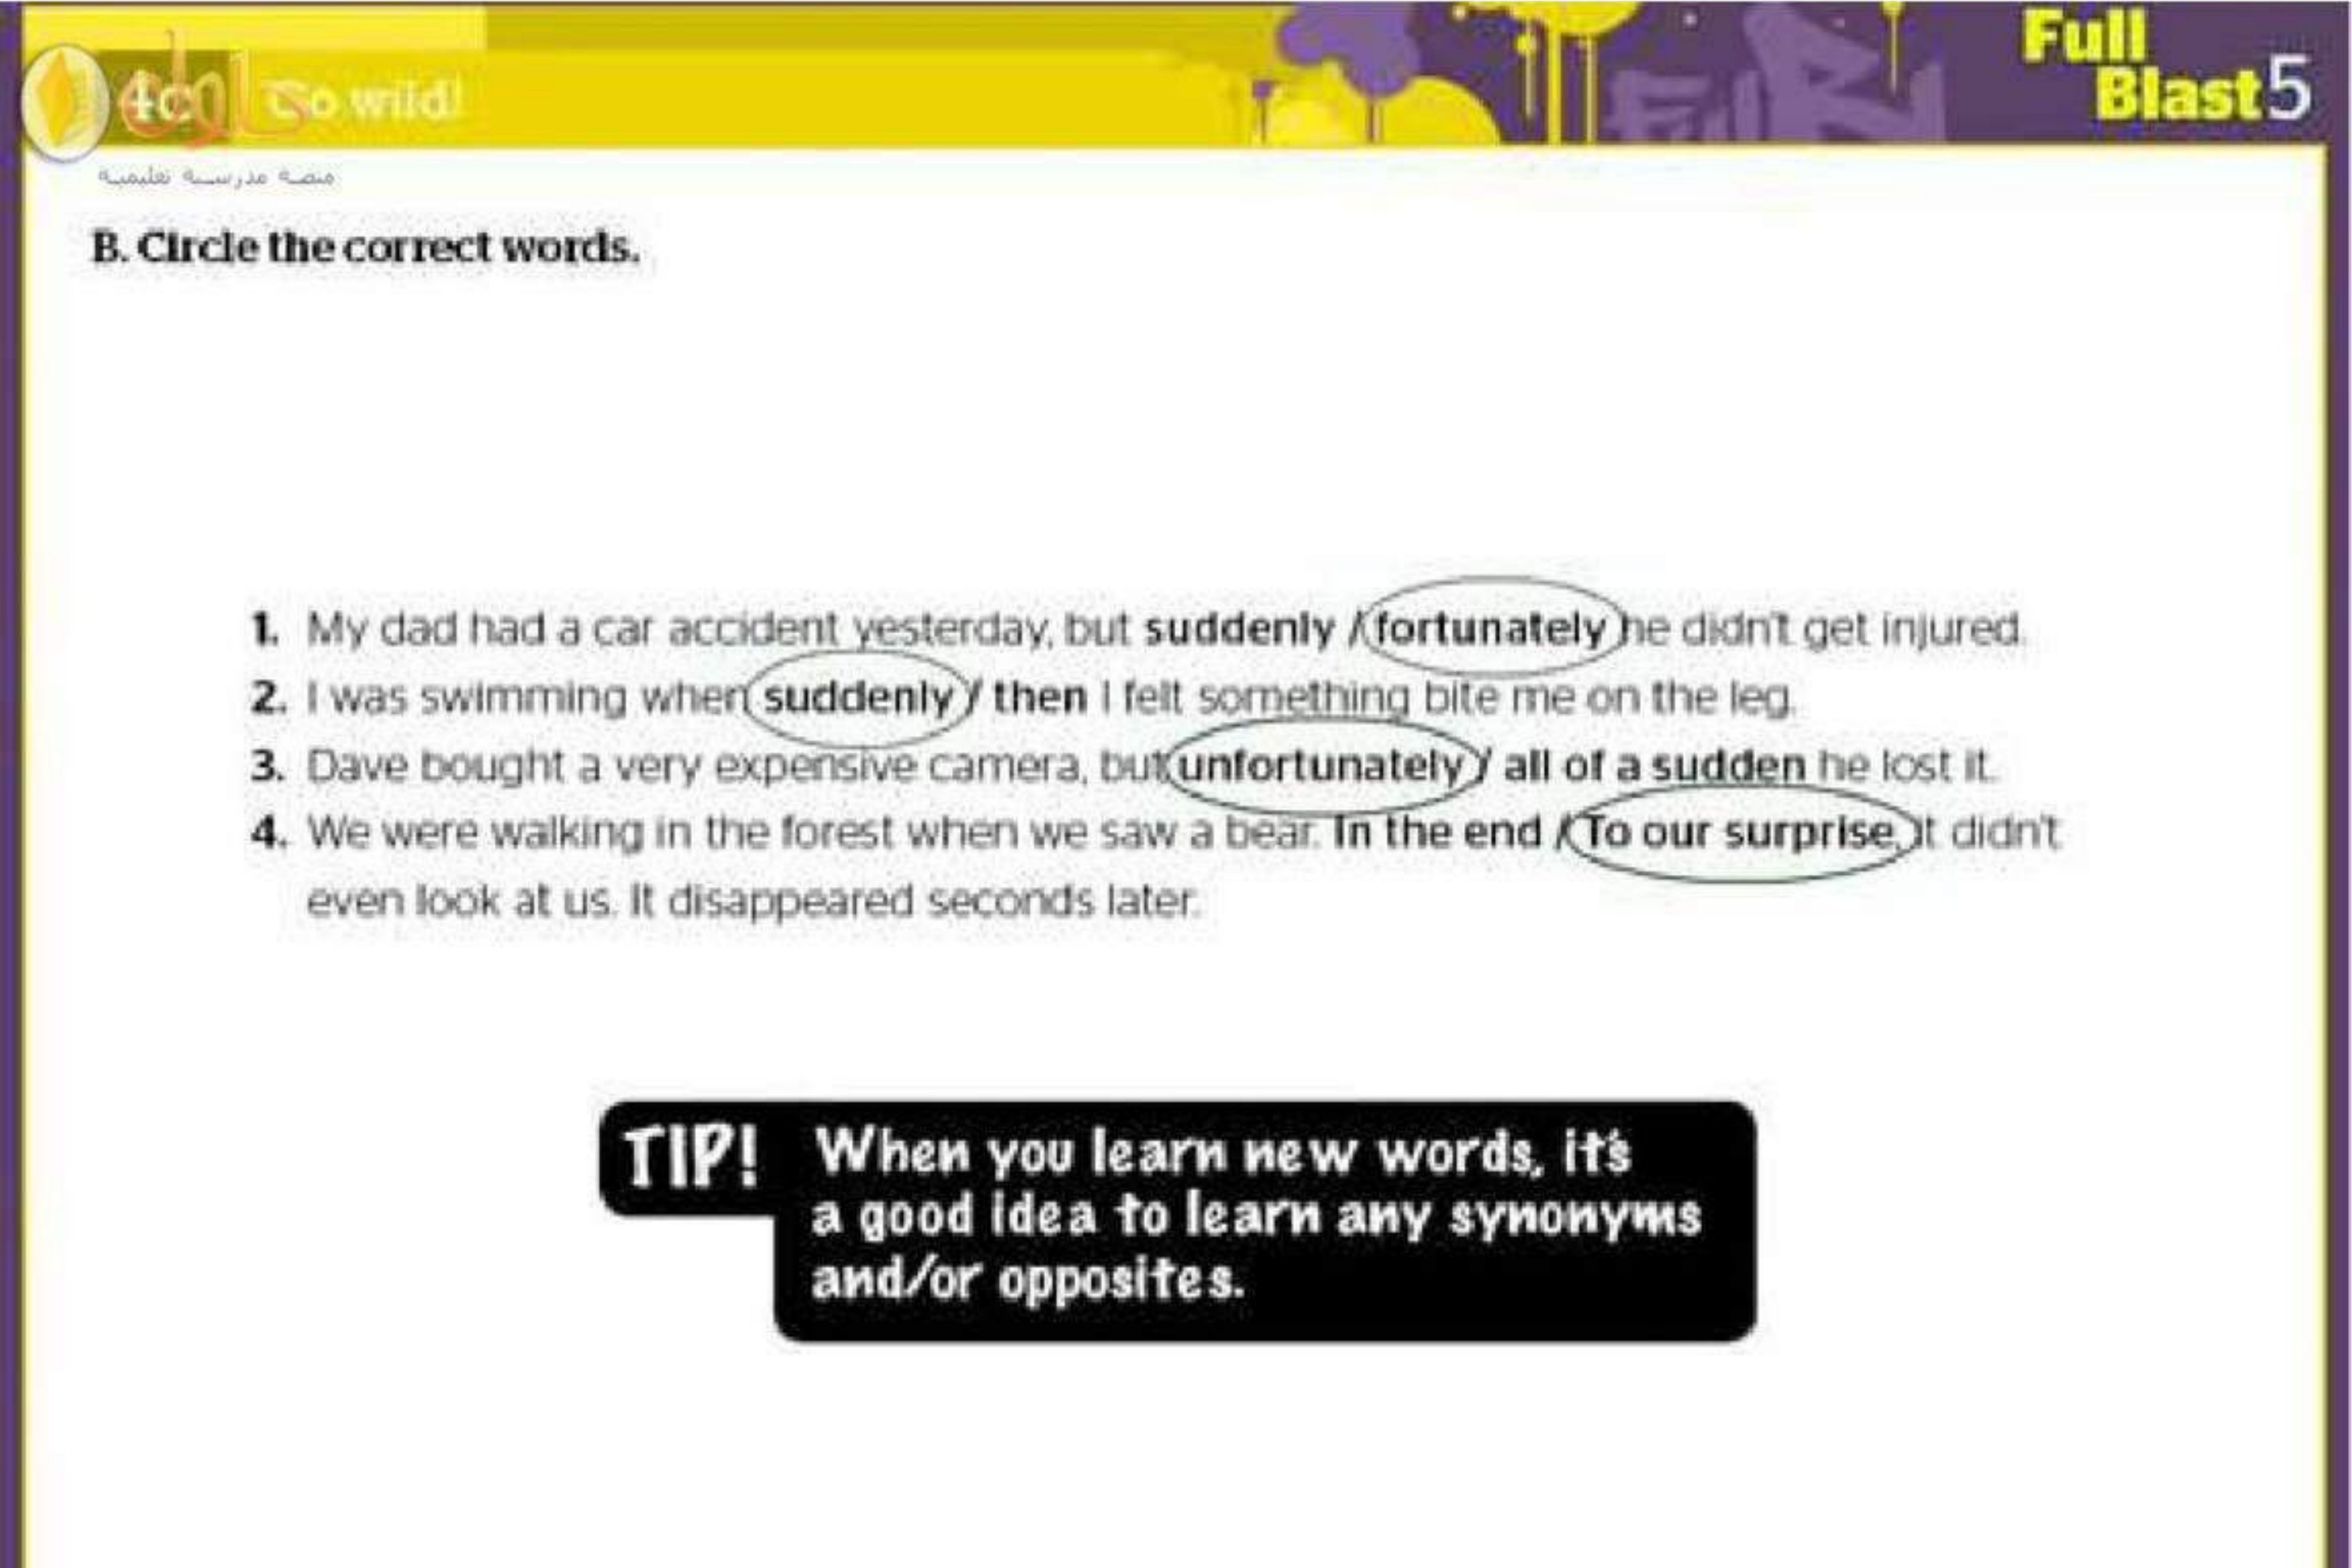 Full
Blast 5
4c Go wild!
منصة مدرسية تعليمية
B. Circle the correct words.
1. My dad had a car accident yesterday, but suddenly / fortunately he didn't get injured.
2. I was swimming when suddenly / then I felt something bite me on the leg.
3. Dave bought a very expensive camera, but unfortunately / all of a sudden he lost it.
4. We were walking in the forest when we saw a bear. In the end / To our surprise, it didn't
even look at us. It disappeared seconds later.
TIP! When you learn new words, it's
a good idea to learn any synonyms
and/or opposites.